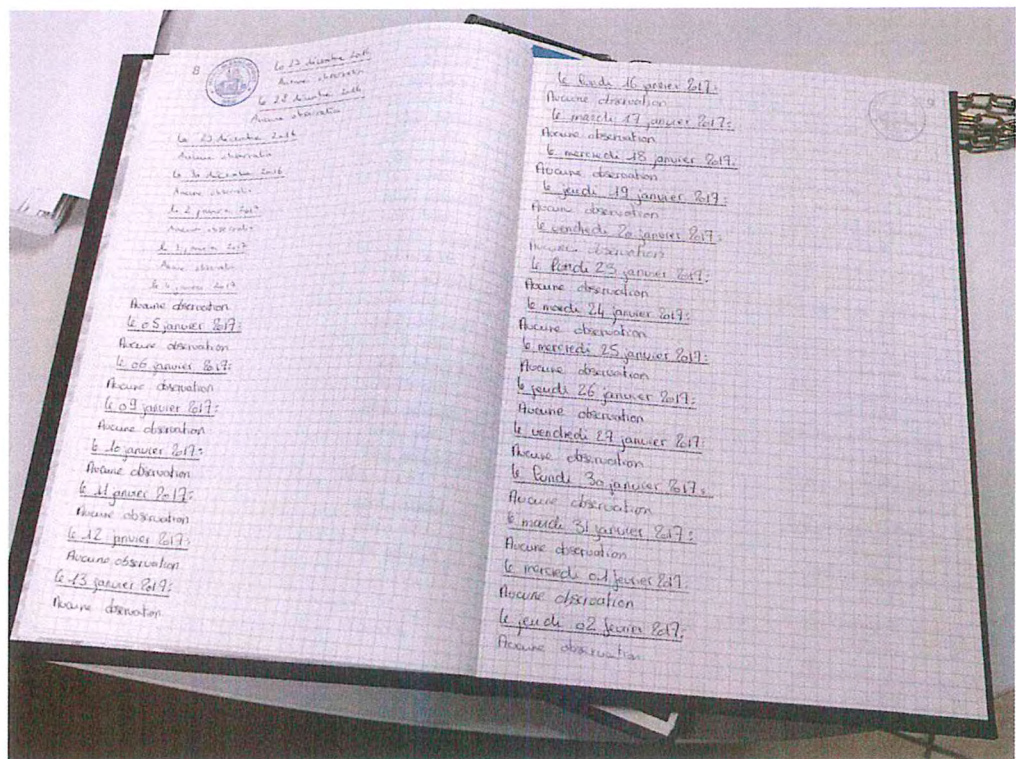 8
le 27 décembre 2016
Aucune observation
le 28 décembre 2016
Aucune observation
le 29 décembre 2016
Aucune observation
le 30 décembre 2016
Aucune observation
le 2 janvier 2017
Aucune observation
le 3 janvier 2017
Aucune observation
le 4 janvier 2017
Aucune observation
le 05 janvier 2017:
Aucune observation
le 06 janvier 2017:
Aucune observation
le 09 janvier 2017:
Aucune observation
le 10 janvier 2017:
Aucune observation
le 11 janvier 2017:
Aucune observation
le 12 janvier 2017:
Aucune observation
le 13 janvier 2017:
Aucune observation
9
le lundi 16 janvier 2017:
Aucune observation
le mardi 17 janvier 2017:
Aucune observation
le mercredi 18 janvier 2017:
Aucune observation
le jeudi 19 janvier 2017:
Aucune observation
le vendredi 20 janvier 2017:
Aucune observation
le lundi 23 janvier 2017:
Aucune observation
le mardi 24 janvier 2017:
Aucune observation
le mercredi 25 janvier 2017:
Aucune observation
le jeudi 26 janvier 2017:
Aucune observation
le vendredi 27 janvier 2017:
Aucune observation
le lundi 30 janvier 2017:
Aucune observation
le mardi 31 janvier 2017:
Aucune observation
le mercredi 01 fevrier 2017:
Aucune observation
le jeudi 02 fevrier 2017:
Aucune observation